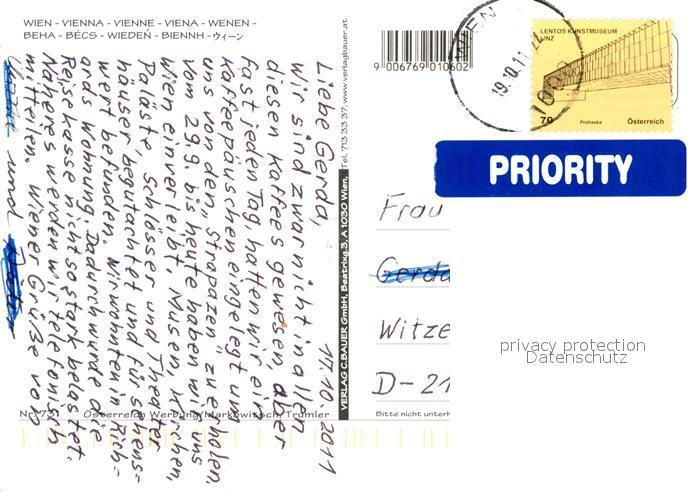 WIEN - VIENNA - VIENNE - VIENA - WENEN -
BEHA - BÉCS - WIEDEŃ - BIENNH - ウィーン
17.10.2011
Liebe Gerda,
wir sind zwar nicht in allen
diesen Kaffees gewesen, aber
fast jeden Tag, hatten wir ein
Kaffeepäuschen eingelegt um
uns von den "Strapazen" zu erholen.
Vom 29.9. bis heute haben wir uns
Wien einverlebt. Museen, Kirchen,
Paläste Schlösser und Theater
häuser begutachtet und für sehens=
wert befunden. Wir wohnten in Rich=
ards Wohnung. Dadurch wurde die
Reisekasse nicht so stark belastet.
Näheres werden wir telefonisch
mitteilen. Wiener Grüße von
und
Nr. 731 Österreich Werbung/Markowitsch, Trumler
VERLAG C. BAUER GmbH, Beatrixg. 3, A 1030 Wien, Tel. 713 33 37, www.verlagbauer.at
9 006769 010602
WIEN
19.10.11
LENTOS KUNSTMUSEUM
LINZ
70 Prohaska Österreich
PRIORITY
Frau
Gerda
Witze
D-21
Bitte nicht unterh
privacy protection
Datenschutz